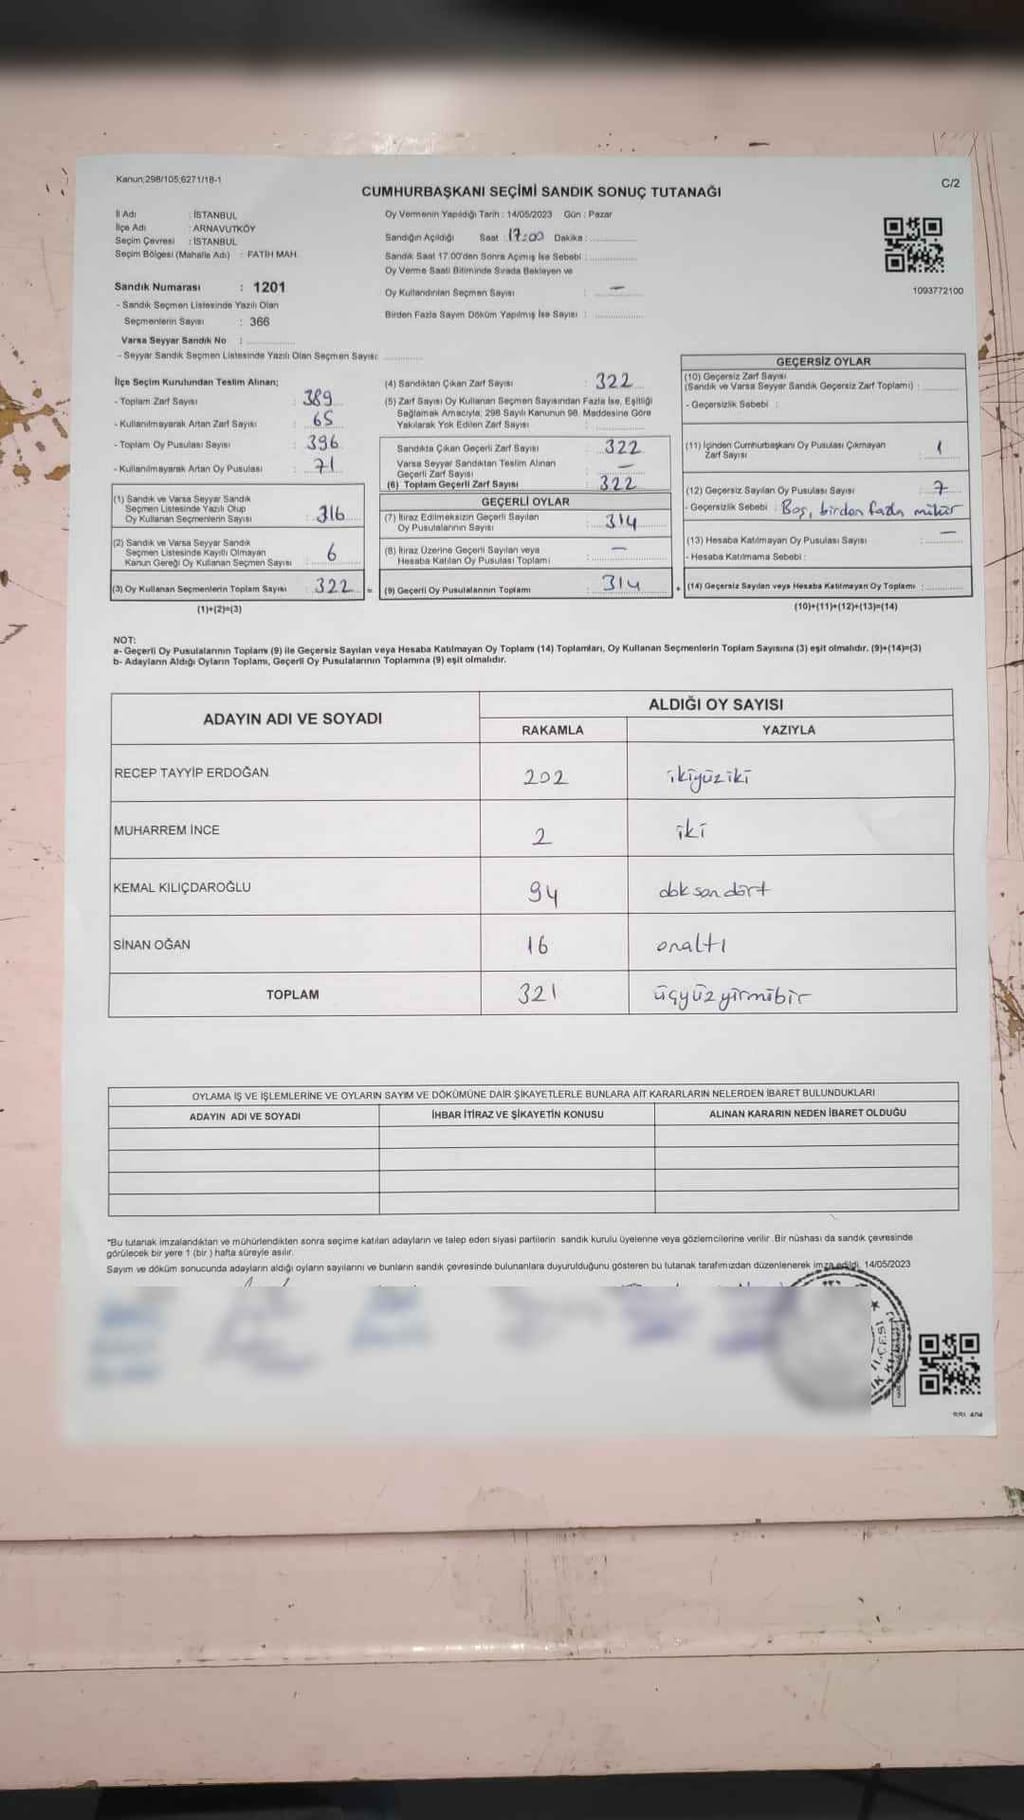 Kanun:298/105;6271/18-1
C/2
CUMHURBAŞKANI SEÇİMİ SANDIK SONUÇ TUTANAĞI
İl Adı : İSTANBUL
İlçe Adı : ARNAVUTKÖY
Seçim Çevresi : İSTANBUL
Seçim Bölgesi (Mahalle Adı) : FATİH MAH.
Sandık Numarası : 1201
- Sandık Seçmen Listesinde Yazılı Olan
Seçmenlerin Sayısı : 366
Varsa Seyyar Sandık No :
- Seyyar Sandık Seçmen Listesinde Yazılı Olan Seçmen Sayısı:
Oy Vermenin Yapıldığı Tarih : 14/05/2023 Gün : Pazar
Sandığın Açıldığı Saat : 17:00 Dakika :
Sandık Saat 17.00'den Sonra Açılmış İse Sebebi :
Oy Verme Saati Bitiminde Sırada Bekleyen ve
Oy Kullandırılan Seçmen Sayısı : —
Birden Fazla Sayım Döküm Yapılmış İse Sayısı :
1093772100
İlçe Seçim Kurulundan Teslim Alınan;
- Toplam Zarf Sayısı : 389
- Kullanılmayarak Artan Zarf Sayısı : 65
- Toplam Oy Pusulası Sayısı : 396
- Kullanılmayarak Artan Oy Pusulası : 71
(1) Sandık ve Varsa Seyyar Sandık
Seçmen Listesinde Yazılı Olup
Oy Kullanan Seçmenlerin Sayısı : 316
(2) Sandık ve Varsa Seyyar Sandık
Seçmen Listesinde Kayıtlı Olmayan
Kanun Gereği Oy Kullanan Seçmen Sayısı : 6
(3) Oy Kullanan Seçmenlerin Toplam Sayısı : 322 =
(1)+(2)=(3)
(4) Sandıktan Çıkan Zarf Sayısı : 322
(5) Zarf Sayısı Oy Kullanan Seçmen Sayısından Fazla İse, Eşitliği
Sağlamak Amacıyla, 298 Sayılı Kanunun 98. Maddesine Göre
Yakılarak Yok Edilen Zarf Sayısı :
Sandıkta Çıkan Geçerli Zarf Sayısı : 322
Varsa Seyyar Sandıktan Teslim Alınan
Geçerli Zarf Sayısı : —
(6) Toplam Geçerli Zarf Sayısı : 322
GEÇERLİ OYLAR
(7) İtiraz Edilmeksizin Geçerli Sayılan
Oy Pusulalarının Sayısı : 314
(8) İtiraz Üzerine Geçerli Sayılan veya
Hesaba Katılan Oy Pusulası Toplamı : —
(9) Geçerli Oy Pusulalarının Toplamı : 314 +
GEÇERSİZ OYLAR
(10) Geçersiz Zarf Sayısı
(Sandık ve Varsa Seyyar Sandık Geçersiz Zarf Toplamı) :
- Geçersizlik Sebebi :
(11) İçinden Cumhurbaşkanı Oy Pusulası Çıkmayan
Zarf Sayısı : 1
(12) Geçersiz Sayılan Oy Pusulası Sayısı : 7
- Geçersizlik Sebebi : Boş, birden fazla mühür
(13) Hesaba Katılmayan Oy Pusulası Sayısı : —
- Hesaba Katılmama Sebebi :
(14) Geçersiz Sayılan veya Hesaba Katılmayan Oy Toplamı :
(10)+(11)+(12)+(13)=(14)
NOT:
a- Geçerli Oy Pusulalarının Toplamı (9) ile Geçersiz Sayılan veya Hesaba Katılmayan Oy Toplamı (14) Toplamları, Oy Kullanan Seçmenlerin Toplam Sayısına (3) eşit olmalıdır. (9)+(14)=(3)
b- Adayların Aldığı Oyların Toplamı, Geçerli Oy Pusulalarının Toplamına (9) eşit olmalıdır.
ADAYIN ADI VE SOYADI
ALDIĞI OY SAYISI
RAKAMLA YAZIYLA
RECEP TAYYİP ERDOĞAN 202 ikiyüziki
MUHARREM İNCE 2 iki
KEMAL KILIÇDAROĞLU 94 doksandört
SİNAN OĞAN 16 onaltı
TOPLAM 321 üçyüzyirmibir
OYLAMA İŞ VE İŞLEMLERİNE VE OYLARIN SAYIM VE DÖKÜMÜNE DAİR ŞİKAYETLERLE BUNLARA AİT KARARLARIN NELERDEN İBARET BULUNDUKLARI
ADAYIN ADI VE SOYADI İHBAR İTİRAZ VE ŞİKAYETİN KONUSU ALINAN KARARIN NEDEN İBARET OLDUĞU
*Bu tutanak imzalandıktan ve mühürlendikten sonra seçime katılan adayların ve talep eden siyasi partilerin sandık kurulu üyelerine veya gözlemcilerine verilir. Bir nüshası da sandık çevresinde
görülecek bir yere 1 (bir ) hafta süreyle asılır.
Sayım ve döküm sonucunda adayların aldığı oyların sayılarını ve bunların sandık çevresinde bulunanlara duyurulduğunu gösteren bu tutanak tarafımızdan düzenlenerek imza edildi. 14/05/2023